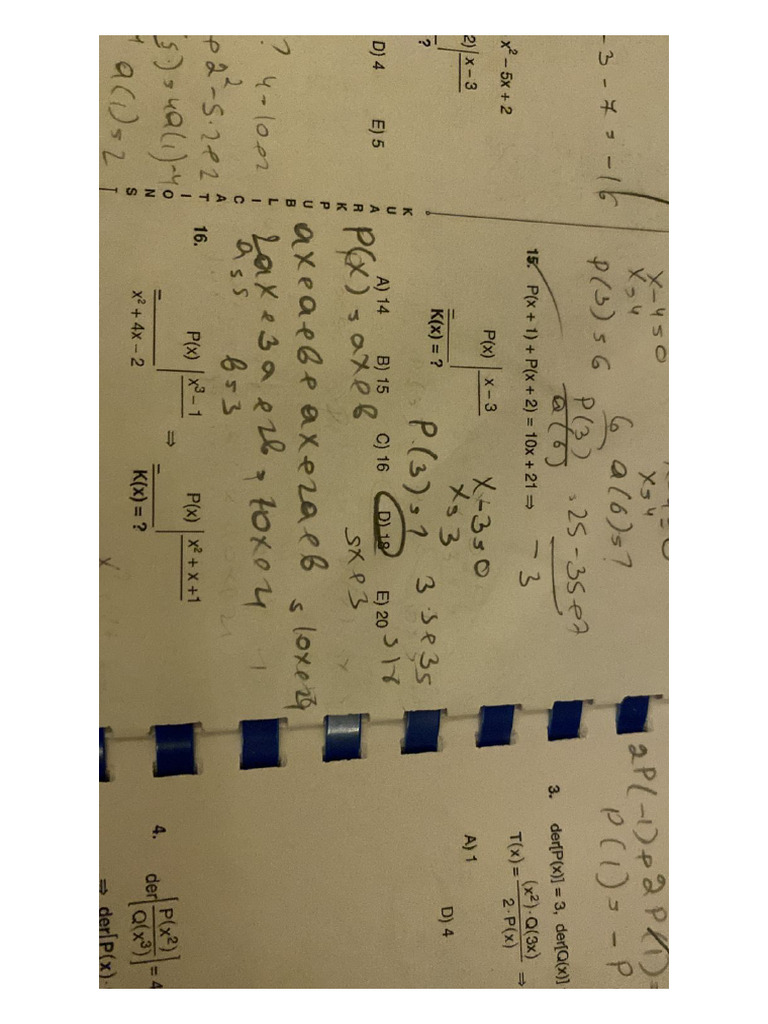 -3 - 7 = -16
x² - 5x + 2
2) | x - 3
?
D) 4 E) 5
4 - 10 +2
+2² - 5.2+2
a(1) = 2
K
U
A
R
K
P
U
B
L
I
C
A
T
I
O
N
S
x-4=0
x=4
x=4
P(3) = 6
6
a(6) = ?
P(3)
a(6)
= 25 - 35+7
- 3
15. P(x + 1) + P(x + 2) = 10x + 21 ⇒
P(x) | x - 3
K(x) = ?
x-3=0
x=3
P(3) = ?
3.5+3=
=18
A) 14 B) 15 C) 16 D) 18 E) 20
P(x) = ax+b
5x+3
ax+a+b+ax+2a+b = 10x+21
2ax+3a+2b = 10x+21
a=5 b=3
16.
P(x) | x³ - 1
x² + 4x - 2
⇒
P(x) | x² + x + 1
K(x) = ?
2P(-1)+2P(1)=
P(1) = -P
3. der[P(x)] = 3, der[Q(x)]
T(x) = (x²)·Q(3x) / 2·P(x) ⇒
A) 1 D) 4
4. der[P(x²) / Q(x³)] = 4
⇒ der[P(x)·